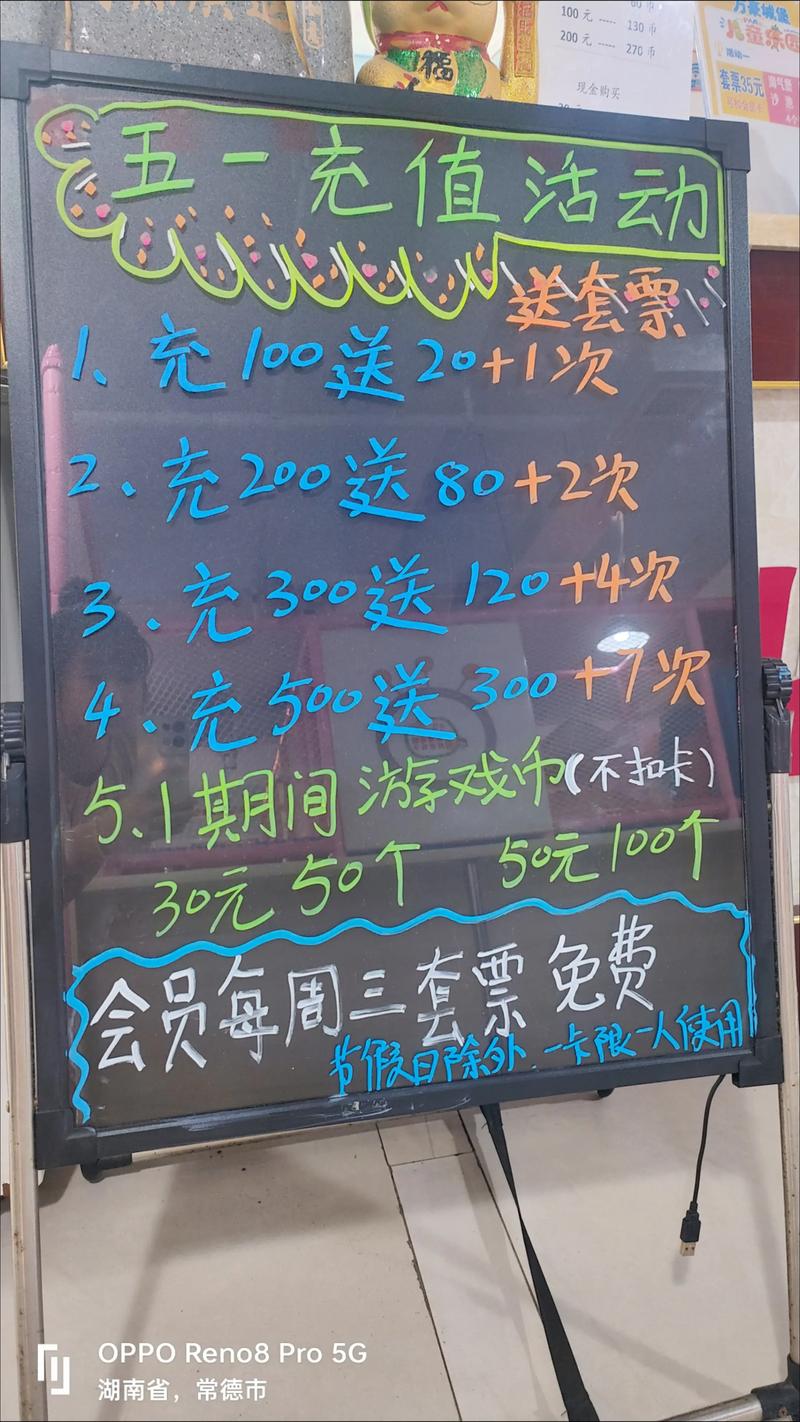 福
招財進宝
100元 ----- 130币
200元 ----- 270币
现金购买
万豪城堡
儿童乐园
活动一
套票35元
五一充值活动
送套票
1、充100送20+1次
2、充200送80+2次
3、充300送120+4次
4、充500送300+7次
5、1期间 游戏币(不扣卡)
30元50个 50元100个
会员每周三套票免费
节假日除外、一卡限一人使用
OPPO Reno8 Pro 5G
湖南省，常德市